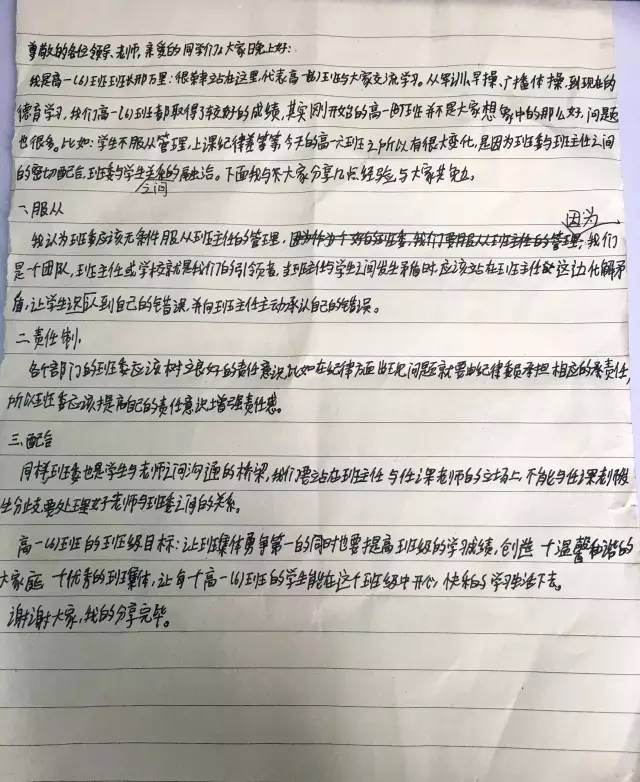 尊敬的各位领导、老师,亲爱的同学们:大家晚上好:
我是高一(6)班班长那万里:很荣幸站在这里,代表高一(6)班与大家交流学习。从军训、早操、广播体操、到现在的
德育学习,我们高一(6)班都取得了较好的成绩,其实刚开始的高一(6)班并不是大家想象中的那么好,问题
也很多。比如:学生不服从管理,上课纪律差等等,今天的高一六班之所以有很大变化,是因为班委与班主任之间
的密切配合,班委与学生之间的融洽。下面我与大家分享几点经验,与大家共勉,
一、服从
我认为班委应该无条件服从班主任的管理,因为我们
是一个团队,班主任或学校就是我们的引领者,当班主任与学生之间发生矛盾时,应该站在班主任这边化解矛
盾,让学生认识到自己的错误,并向班主任主动承认自己的错误。
二、责任制,
各个部门的班委应该树立良好的责任意识,比如在纪律方面出现问题就要由纪律委员承担相应的责任,
所以班委应该提高自己的责任意识上增强责任感。
三、配合
同样班委也是学生与老师之间沟通的桥梁,我们要站在班主任与任课老师的立场上,不能与任课老师发
生分歧,要处理好老师与班委之间的关系。
高一(6)班的班级目标:让班集体勇争第一的同时也要提高班级的学习成绩,创造一个温馨和谐的
大家庭 一个优秀的班集体,让每一个高一(6)班的学生能在这个班级中开心,快乐的学习生活下去。
谢谢大家,我的分享完毕。